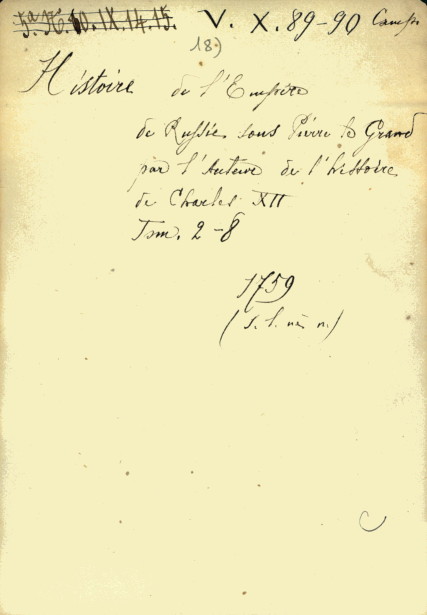 5ª K. 10. IX. 14. 15. V. X. 89-90 Camp.
18)
Histoire de l'Empire
de Russie sous Pierre le Grand
par l'Auteur de l'histoire
de Charles XII
Tom. 2-8
1759
(S. l. né n.)
C